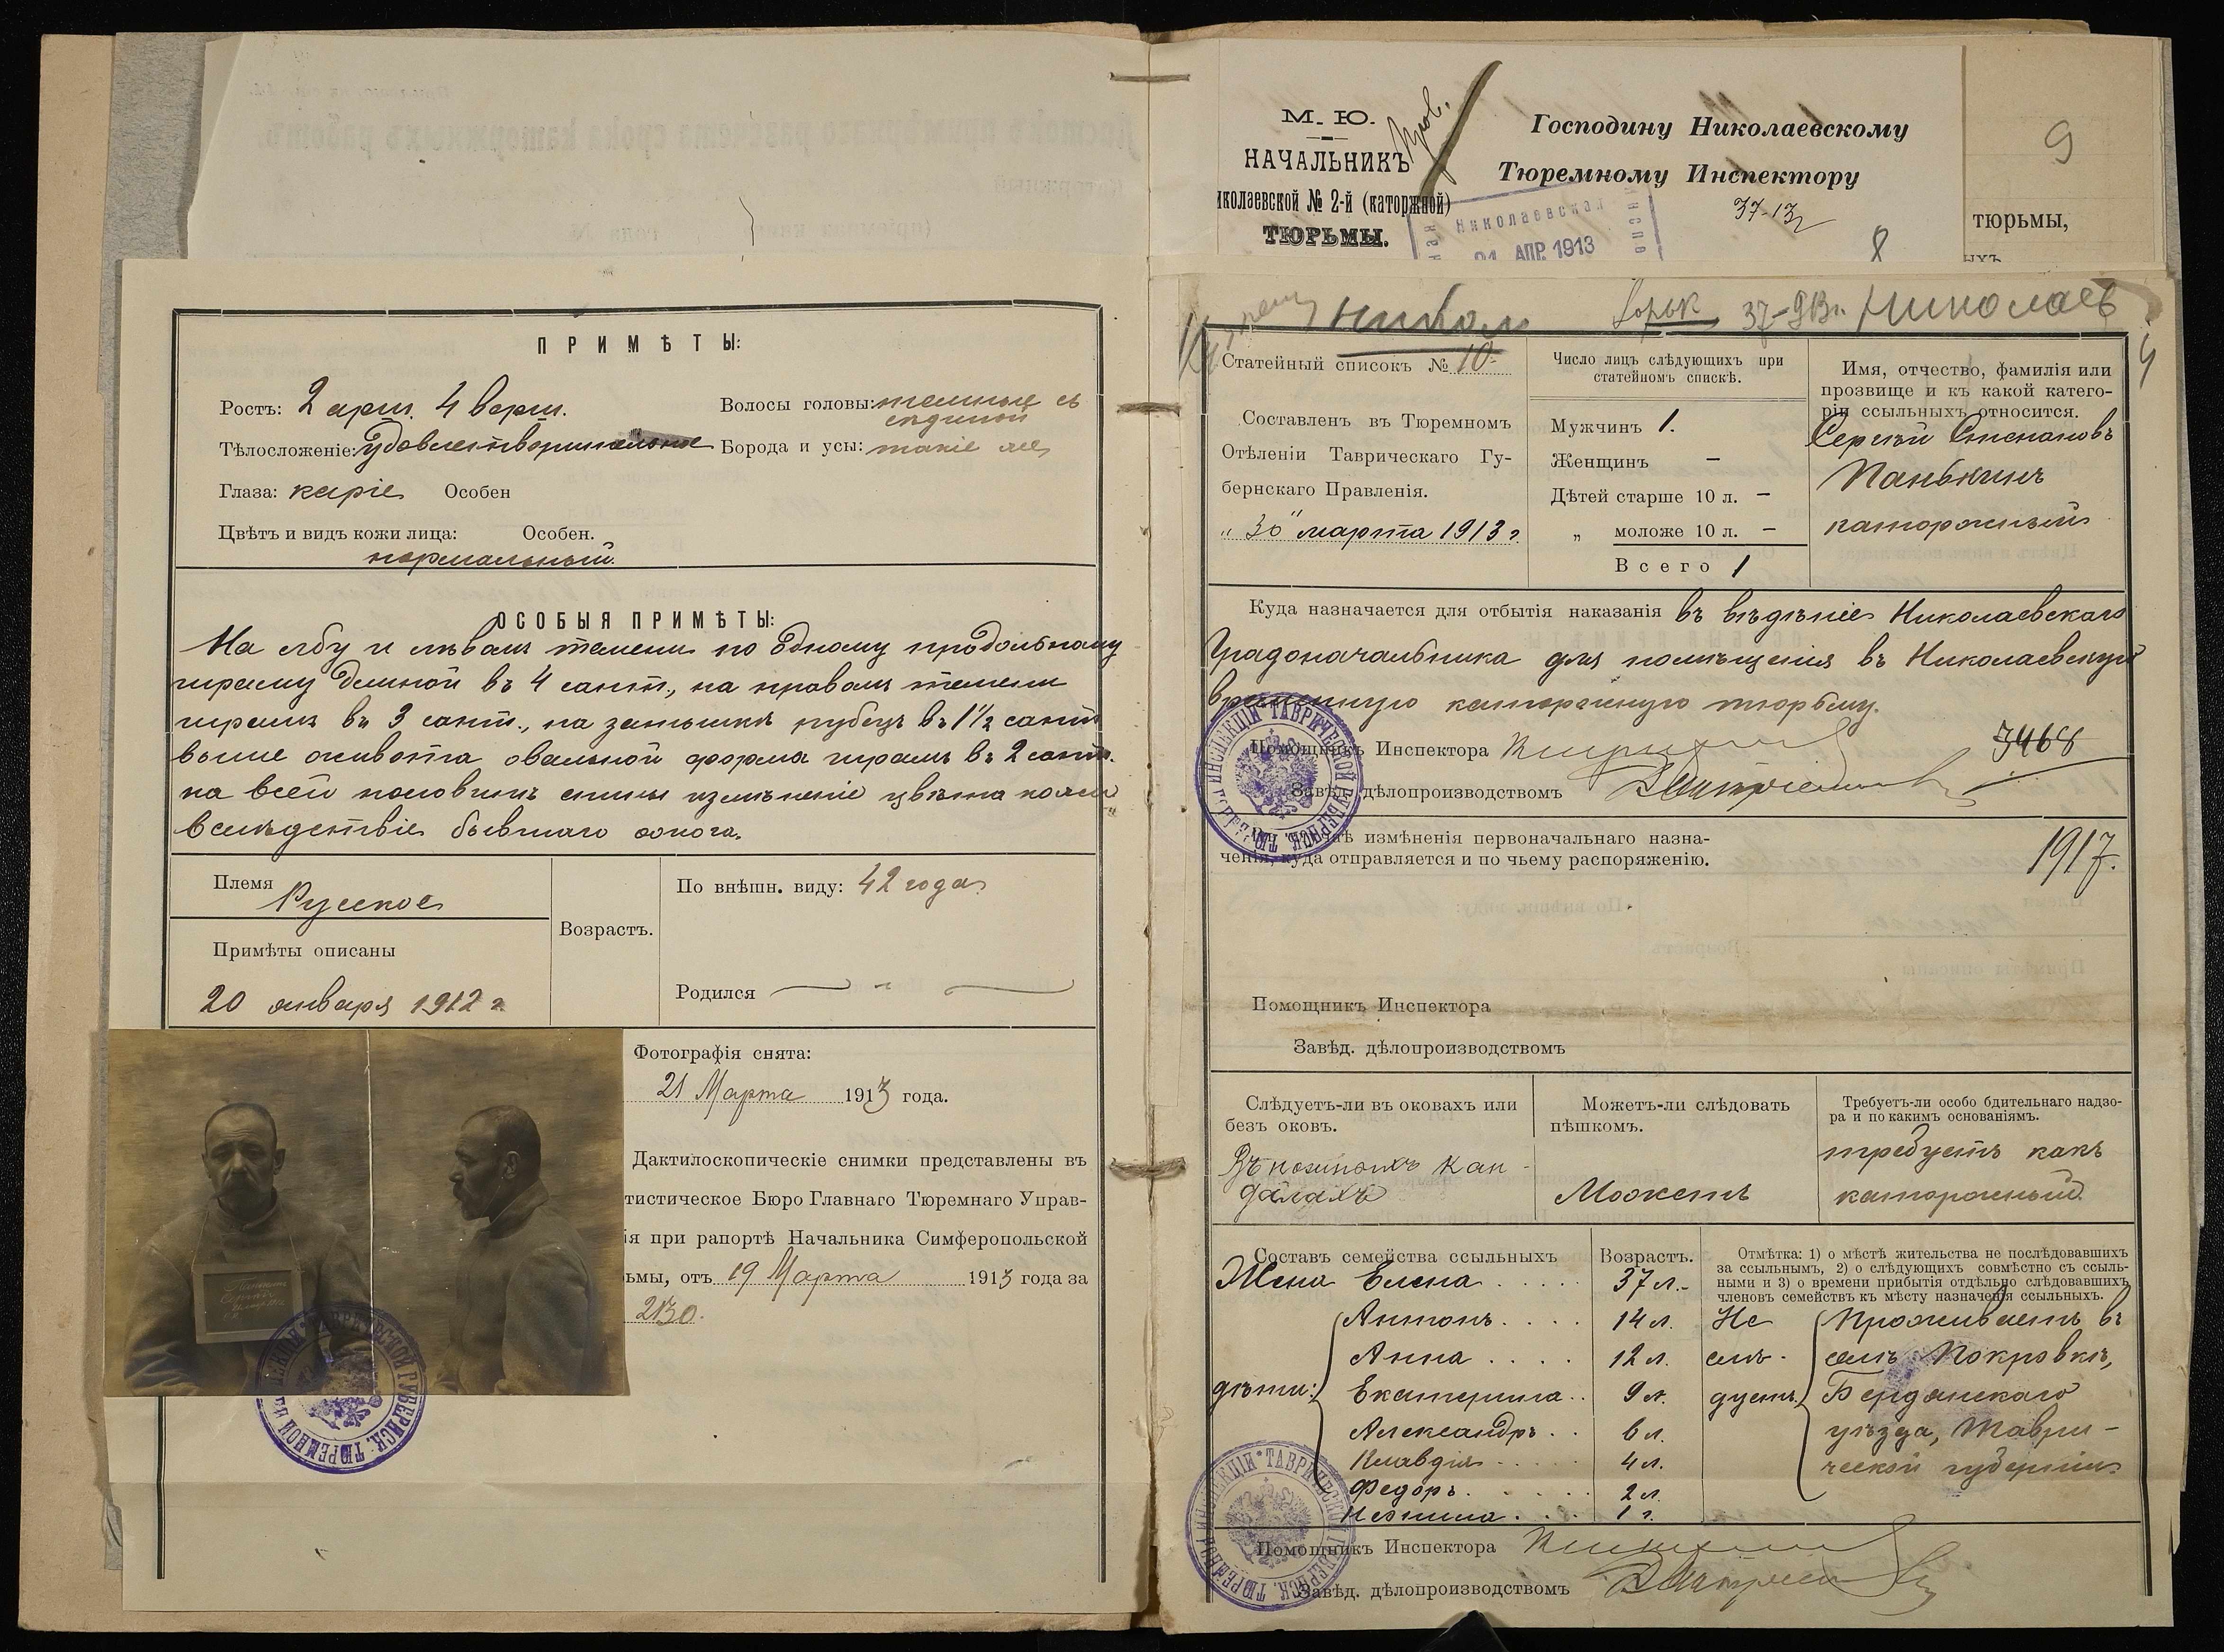 ПРИМѢТЫ:
Ростъ: 2 арш. 4 верш.
Волосы головы: темные съ
сѣдиной
Тѣлосложеніе: удовлетворительное
Борода и усы: такіе же
Глаза: каріе Особен
Цвѣтъ и видъ кожи лица: Особен.
нормальный.
ОСОБЫЯ ПРИМѢТЫ:
На лбу и лѣвомъ темени по одному продольному
шраму длиной въ 4 сант., на правомъ темени
шрамъ въ 3 сант., на затылкѣ рубецъ въ 1 1/2 сант.
выше живота овальной форма шрамъ въ 2 сант.
на всей половинѣ спины измѣненіе цвѣта кожи
вслѣдствіе бывшаго ожога.
Племя
Русское
Примѣты описаны
20 января 1912 г.
Возрастъ.
По внѣшн. виду: 42 года
Родился
Фотографія снята:
21 Марта 1913 года.
Дактилоскопическіе снимки представлены въ
тистическое Бюро Главнаго Тюремнаго Управ-
ія при рапортѣ Начальника Симферопольской
ьмы, отъ 19 Марта 1913 года за
2130.
М. Ю.
НАЧАЛЬНИКЪ
иколаевской № 2-й (каторжной)
ТЮРЬМЫ.
Господину Николаевскому
Тюремному Инспектору
37-13
Николаевская
21 АПР. 1913
8
9
тюрьмы,
ыхъ
37-913 г. Николаевъ
4
Статейный списокъ № 10
Составленъ въ Тюремномъ
Отѣленіи Таврическаго Гу-
бернскаго Правленія.
„30" марта 1913 г.
Число лицъ слѣдующихъ при
статейномъ спискѣ.
Мужчинъ 1.
Женщинъ —
Дѣтей старше 10 л. —
„ моложе 10 л. —
Всего 1
Имя, отчество, фамилія или
прозвище и къ какой катего-
ріи ссыльныхъ относится.
Сергѣй Степановъ
Панькинъ
каторжный
Куда назначается для отбытія наказанія въ вѣдѣніе Николаевскаго
Градоначальника для помѣщенія въ Николаевскую
временную каторжную тюрьму.
Помощникъ Инспектора
3468
Завѣд. дѣлопроизводствомъ
измѣненія первоначальнаго назна-
ченія, куда отправляется и по чьему распоряженію.
1917.
Помощникъ Инспектора
Завѣд. дѣлопроизводствомъ
Слѣдуетъ-ли въ оковахъ или
безъ оковъ.
Въ ножныхъ кан-
далахъ
Можетъ-ли слѣдовать
пѣшкомъ.
Можетъ
Требуетъ-ли особо бдительнаго надзо-
ра и по какимъ основаніямъ.
требуетъ какъ
каторжный.
Составъ семейства ссыльныхъ
Возрастъ.
Отмѣтка: 1) о мѣстѣ жительства не послѣдовавшихъ
за ссыльнымъ, 2) о слѣдующихъ совмѣстно съ ссыль-
ными и 3) о времени прибытія отдѣльно слѣдовавшихъ
членовъ семействъ къ мѣсту назначенія ссыльныхъ.
Жена Елена . . . . 37 л.
Антонъ . . . . 14 л. Не Проживаетъ въ
Анна . . . . 12 л. слѣ- селѣ Покровкѣ,
дѣти: Екатерина . . 9 л. дуетъ. Бердянскаго
Александръ . . 6 л. уѣзда, Таври-
Клавдія . . . . 4 л. ческой губерніи
Федоръ . . . . 2 л.
Неонила . . . 1 г.
Помощникъ Инспектора
Завѣд. дѣлопроизводствомъ